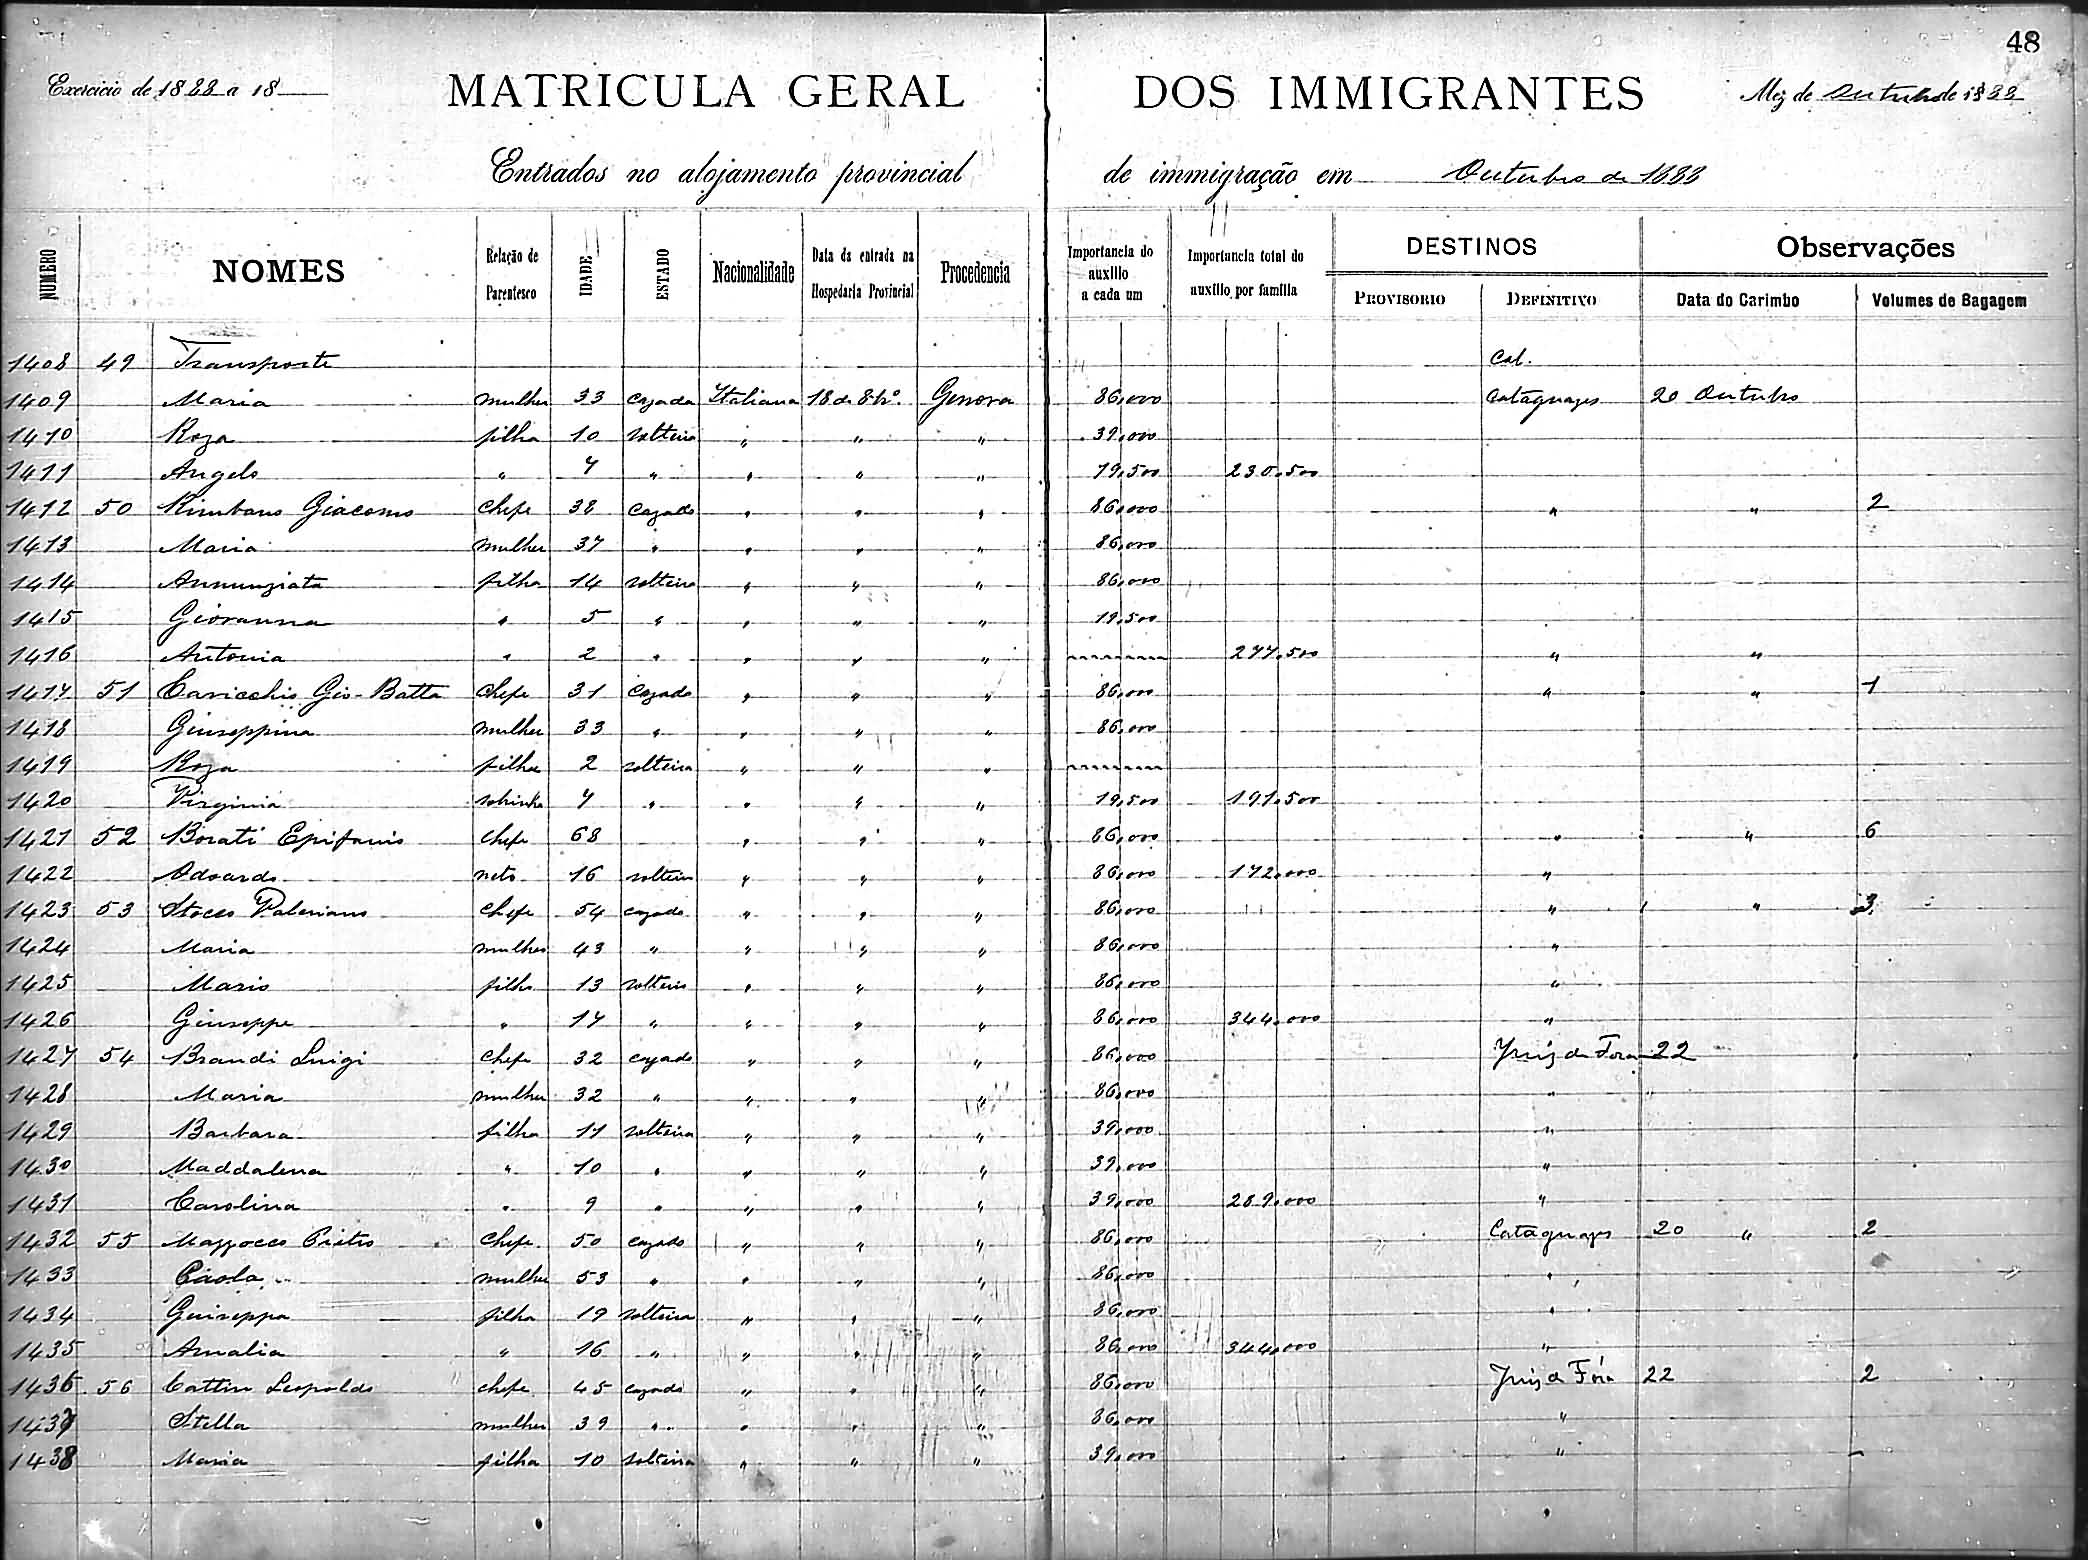 48
Exercicio de 1888 a 18
MATRICULA GERAL DOS IMMIGRANTES
Mez de Outubro de 1888
Entrados no alojamento provincial de immigração em Outubro de 1888
NUMERO NOMES Relação de Parentesco IDADE ESTADO Nacionalidade Data da entrada na Hospedaria Provincial Procedencia Importancia do auxilio a cada um Importancia total do auxilio por familia DESTINOS Observações
PROVISORIO DEFINITIVO Data do Carimbo Volumes de Bagagem
1408 49 Transporte Cat.
1409 Maria mulher 33 cazada Italiana 18 de 8bro. Genova 86,000 Cataguazes 20 Outubro
1410 Roza filha 10 solteira " " " 39,000
1411 Angelo " 7 " " " " 19,500 230,500
1412 50 Giacomo chefe 38 cazado " " " 86,000 " " 2
1413 Maria mulher 37 " " " " 86,000
1414 Annunziata filha 14 solteira " " " 86,000
1415 Giovanna " 5 " " " " 19,500
1416 Antonia " 2 " " " " 277,500 " "
1417 51 Cavicchio Gio-Batta chefe 31 cazado " " " 86,000 " " 1
1418 Giuseppina mulher 33 " " " " 86,000
1419 Roza filha 2 solteira " " "
1420 Virginia sobinha 7 " " " " 19,500 191,500
1421 52 Borati Epifanio chefe 68 " " " 86,000 " " 6
1422 Odoardo neto 16 solteiro " " " 86,000 172,000 "
1423 53 Stocco Valeriano chefe 54 cazado " " " 86,000 " " 3
1424 Maria mulher 43 " " " " 86,000 "
1425 Mario filho 13 solteiro " " " 86,000 "
1426 Giuseppe " 17 " " " " 86,000 344,000 "
1427 54 Brandi Luigi chefe 32 cazado " " " 86,000 Juiz de Fora 22
1428 Maria mulher 32 " " " " 86,000 " "
1429 Barbara filha 11 solteira " " " 39,000 "
1430 Maddalena " 10 " " " " 39,000 "
1431 Carolina " 9 " " " " 39,000 289,000 "
1432 55 Mazzocco Pietro chefe 50 cazado " " " 86,000 Cataguazes 20 " 2
1433 Paola mulher 53 " " " " 86,000 "
1434 Guiseppa filha 19 solteira " " " 86,000 "
1435 Amalia " 16 " " " " 86,000 344,000 "
1436 56 Cattin Leopoldo chefe 45 cazado " " " 86,000 Juiz de Fóra 22 2
1437 Stella mulher 39 " " " " 86,000 "
1438 Maria filha 10 solteira " " " 39,000 "